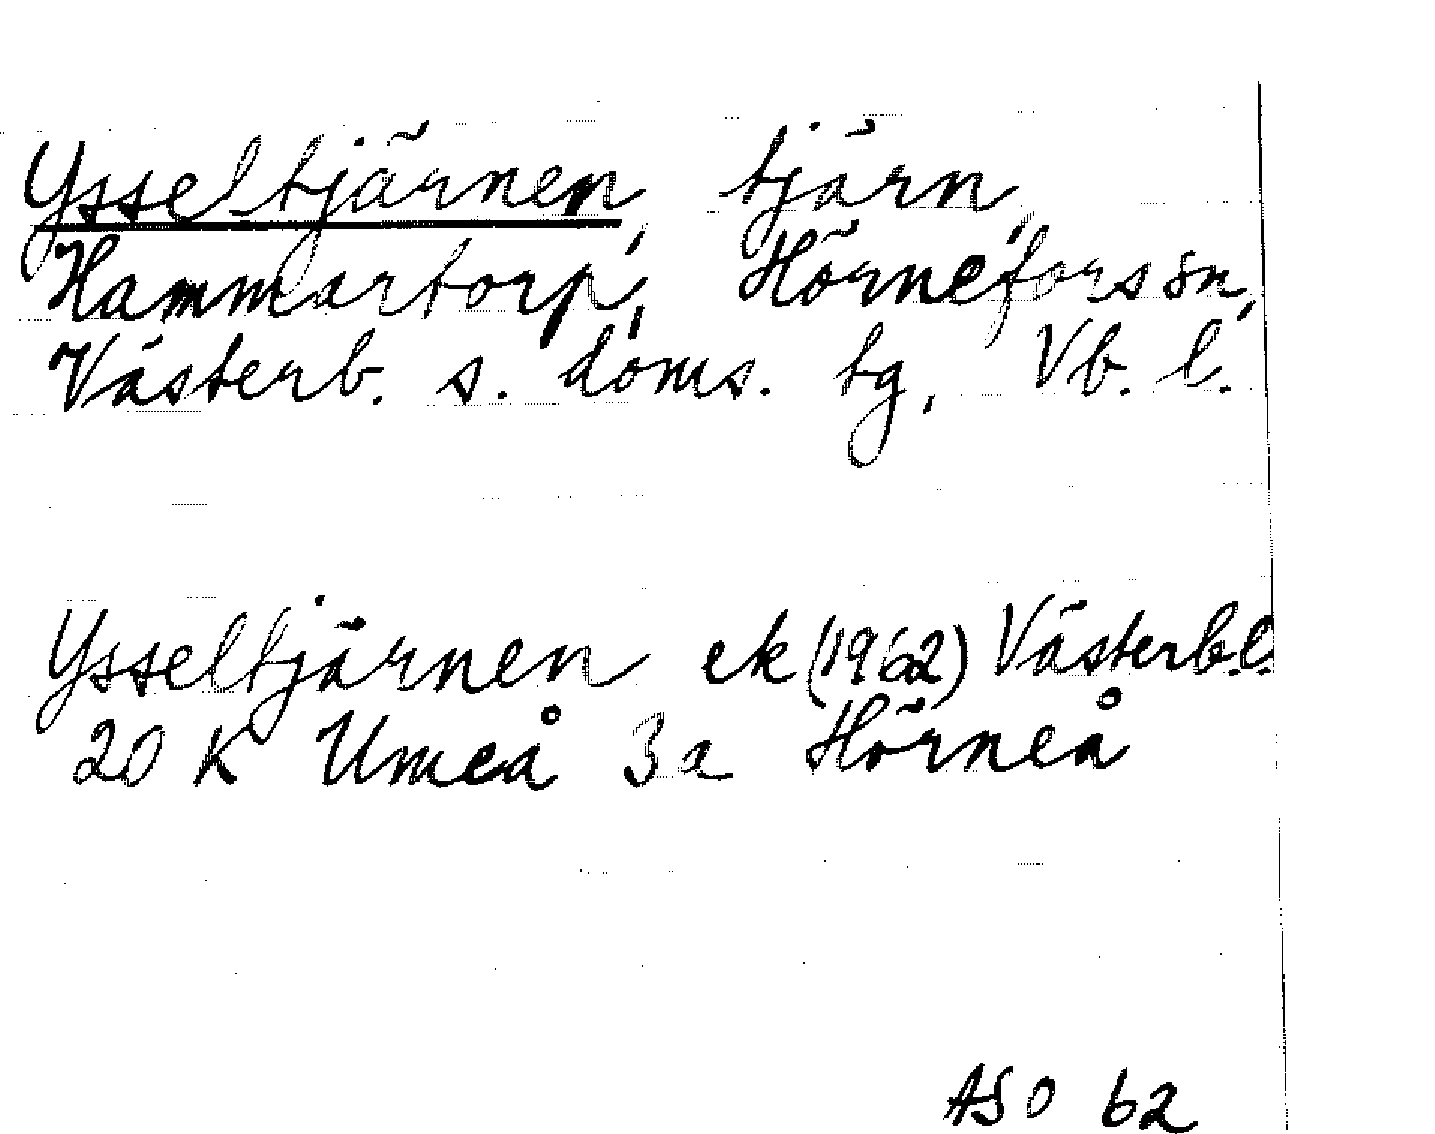 Ysseltjärnen, tjärn,
Hammartorp, Hörnefors sn,
Västerb. s. doms. tg, Vb. l.
Ysseltjärnen ek (1962) Västerb.l.
20 K Umeå 3 a Hörneå
ASO 62